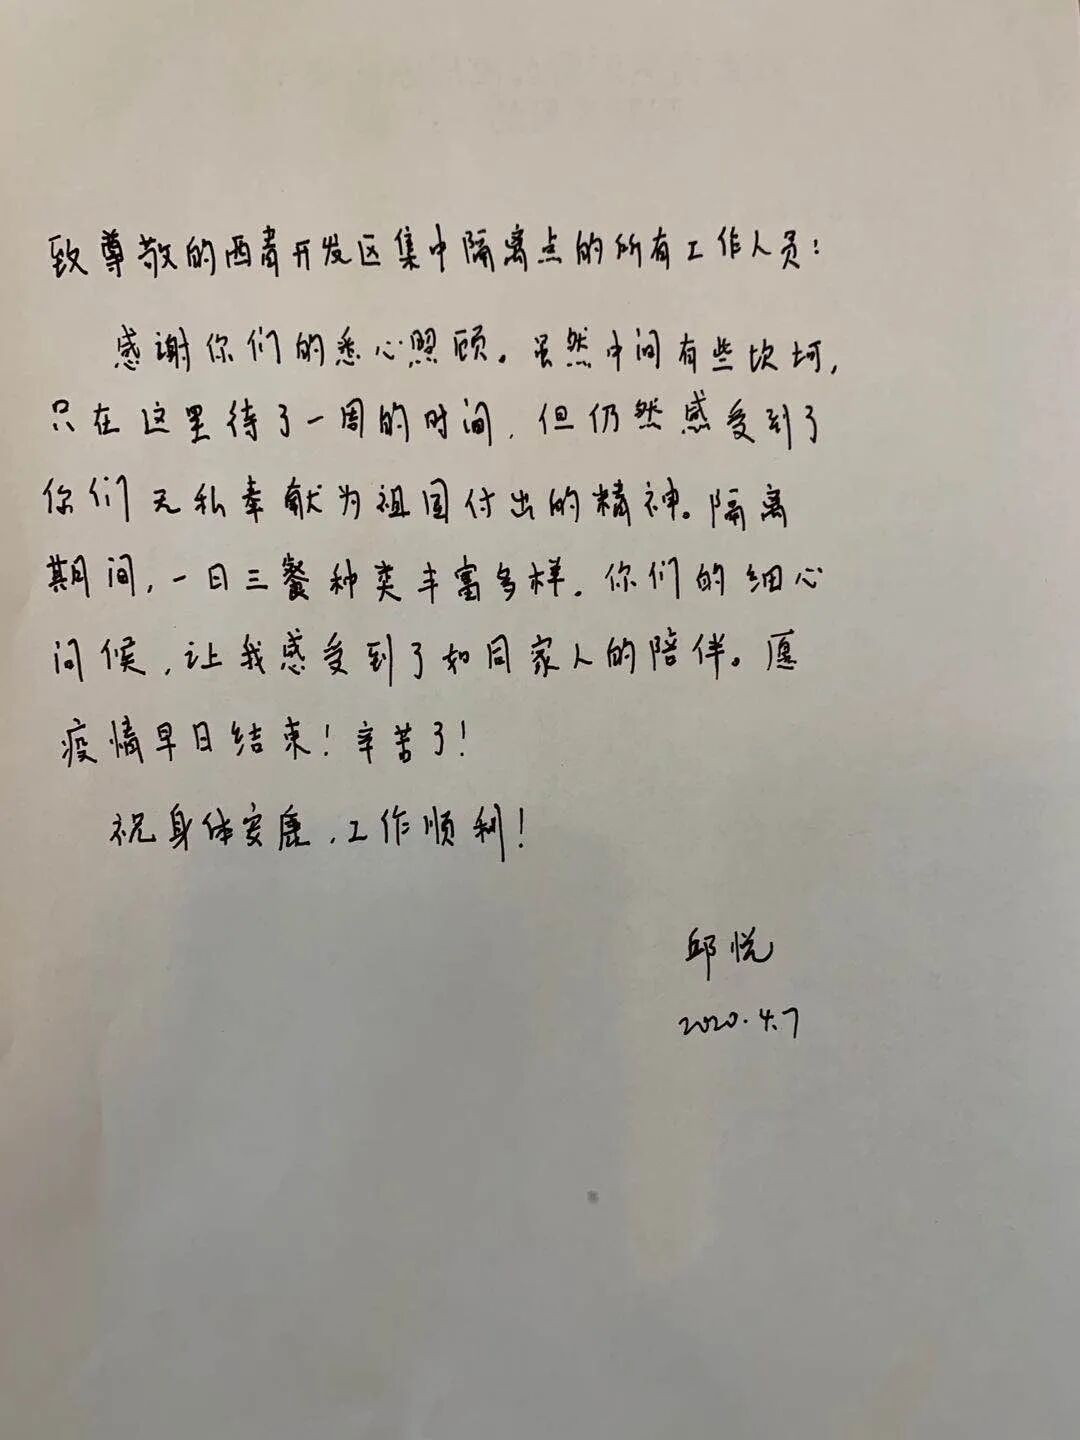 致尊敬的西青开发区集中隔离点的所有工作人员：
感谢你们的悉心照顾。虽然中间有些坎坷，
只在这里待了一周的时间，但仍然感受到了
你们无私奉献为祖国付出的精神。隔离
期间，一日三餐种类丰富多样。你们的细心
问候，让我感受到了如同家人的陪伴。愿
疫情早日结束！辛苦了！
祝身体安康，工作顺利！
邱悦
2020.4.7